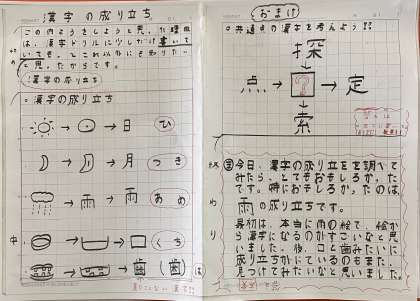 漢字の成り立ち
この内ようをしようと思った理由
は、漢字ドリルに少しだけ書いて
いても、とこれ以外にも知りたい
と思ったからです。
漢字の成り立ち
漢字の成り立ち
→ → 日 ひ
→ → 月 つき
→ 雨 → 雨 あめ
→ → 口 くち
→ → 歯（歯）は
中
おまけ
共通点の漢字を考えよう!!
探
点 → ? → 定
索
終わり
今日、漢字の成り立ちを調べて
みたら、とてもおもしろかった
です。特におもしろかったのは、
雨の成り立ちです。
最初は、本当に雨の絵で、絵か
ら漢字になるのがすごいなと思
いました。後、こと歯みたいに
成り立ちがにているのもまた、
見つけてみたいなと思いました。